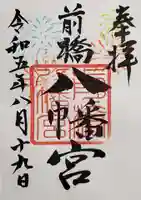 奉拝
前橋
八幡宮
令和五年八月十九日